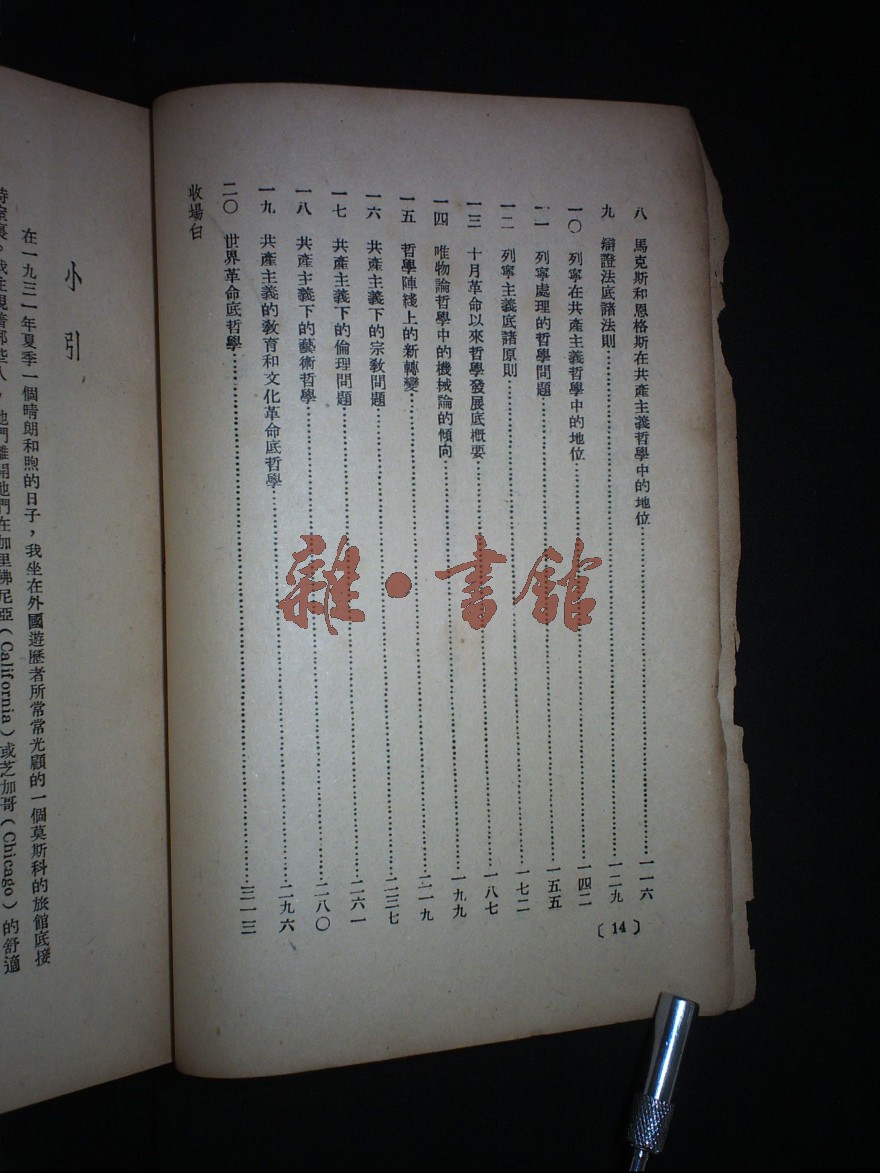 八　馬克斯和恩格斯在共產主義哲學中的地位……一一六
九　辯證法底諸法則……一二九
一〇　列寧在共產主義哲學中的地位……一四二
一一　列寧處理的哲學問題……一五五
一二　列寧主義底諸原則……一七二
一三　十月革命以來哲學發展底概要……一八七
一四　唯物論哲學中的機械論的傾向……一九九
一五　哲學陣綫上的新轉變……二一九
一六　共產主義下的宗教問題……二三七
一七　共產主義下的倫理問題……二六一
一八　共產主義下的藝術哲學……二八〇
一九　共產主義的教育和文化革命底哲學……二九六
二〇　世界革命底哲學……三一三
收場白
〔14〕
小引
在一九三一年夏季一個晴朗和煦的日子，我坐在外國遊歷者所常常光顧的一個莫斯科的旅館底接
他們離開他們在加里佛尼亞（California）或芝加哥（Chicago）的舒適
雜·書館